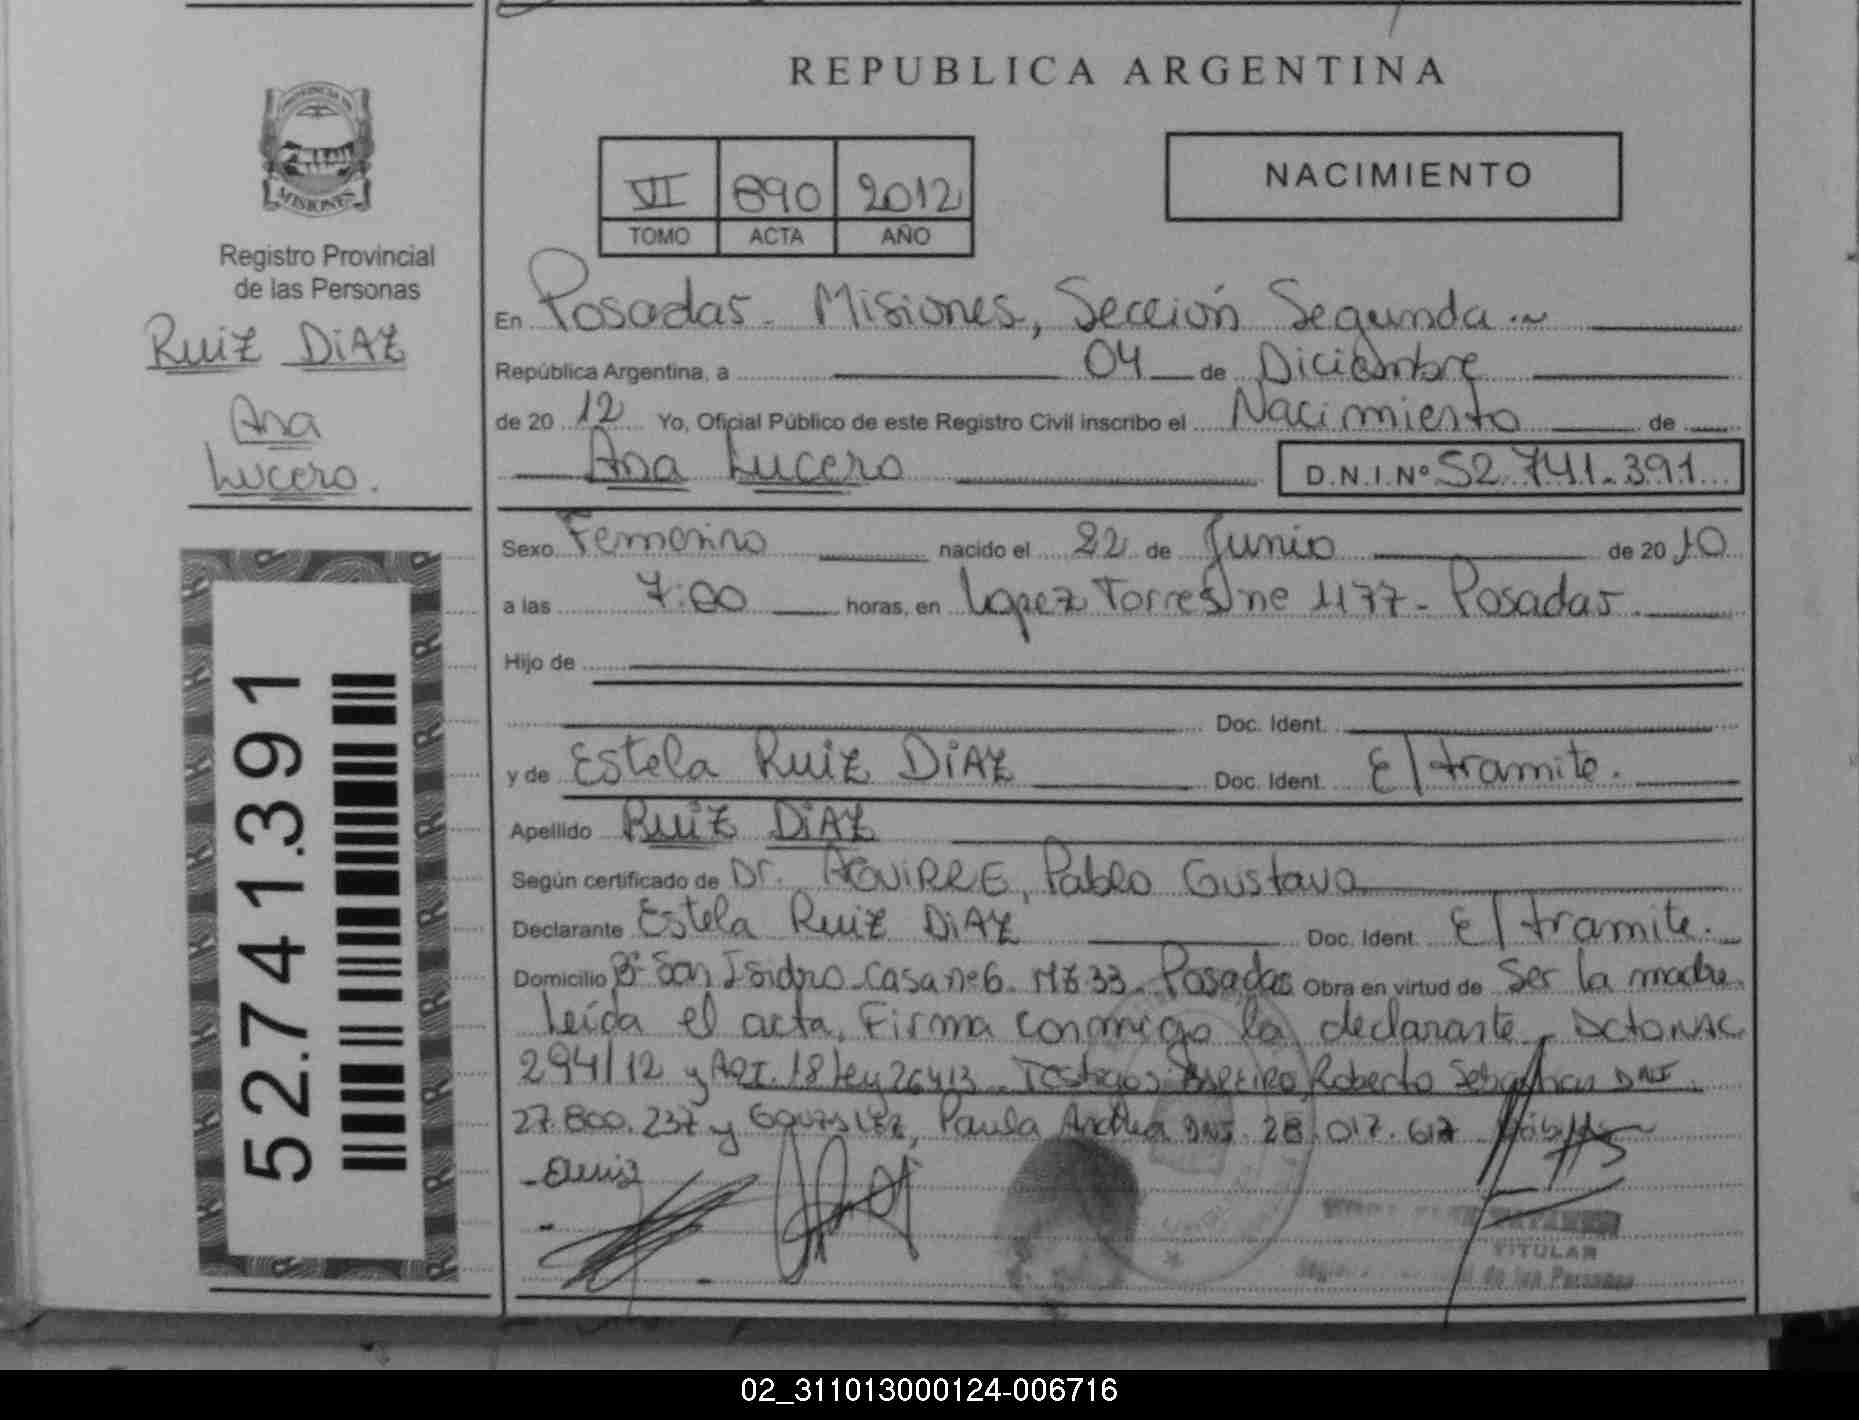 REPUBLICA ARGENTINA
PROVINCIA DE
MISIONES
Registro Provincial
de las Personas
RUIZ DIAZ
Ana
Lucero.
52.741.391
VI 890 2012
TOMO ACTA AÑO
NACIMIENTO
En Posadas. Misiones, Sección Segunda.~
República Argentina, a 04 de Diciembre
de 20 12 Yo, Oficial Público de este Registro Civil inscribo el Nacimiento de
Ana Lucero D.N.I.Nº 52.741.391
Sexo Femenino nacido el 22 de Junio de 20 10
a las 7:00 horas, en Lopez Torres Nne 1177- Posadas.
Hijo de
Doc. Ident.
y de Estela Ruiz DiAZ Doc. Ident. E/tramite.
Apellido RUIZ DIAZ
Según certificado de Dr. AGUIRRE, Pablo Gustavo
Declarante Estela Ruiz DiAZ Doc. Ident. E/tramite.
Domicilio Bº San Isidro casa nº6. MZ 33. Posadas Obra en virtud de Ser la madre.
Leída el acta, Firma conmigo la declarante. DctoNAC
294/12 y ART. 18 Ley 26413. Testigos Roberto Sebastian DNI
27.800.237 y GONZALEZ, Paula Andrea DNI. 28.017.617
TITULAR
de las Personas
02_311013000124-006716